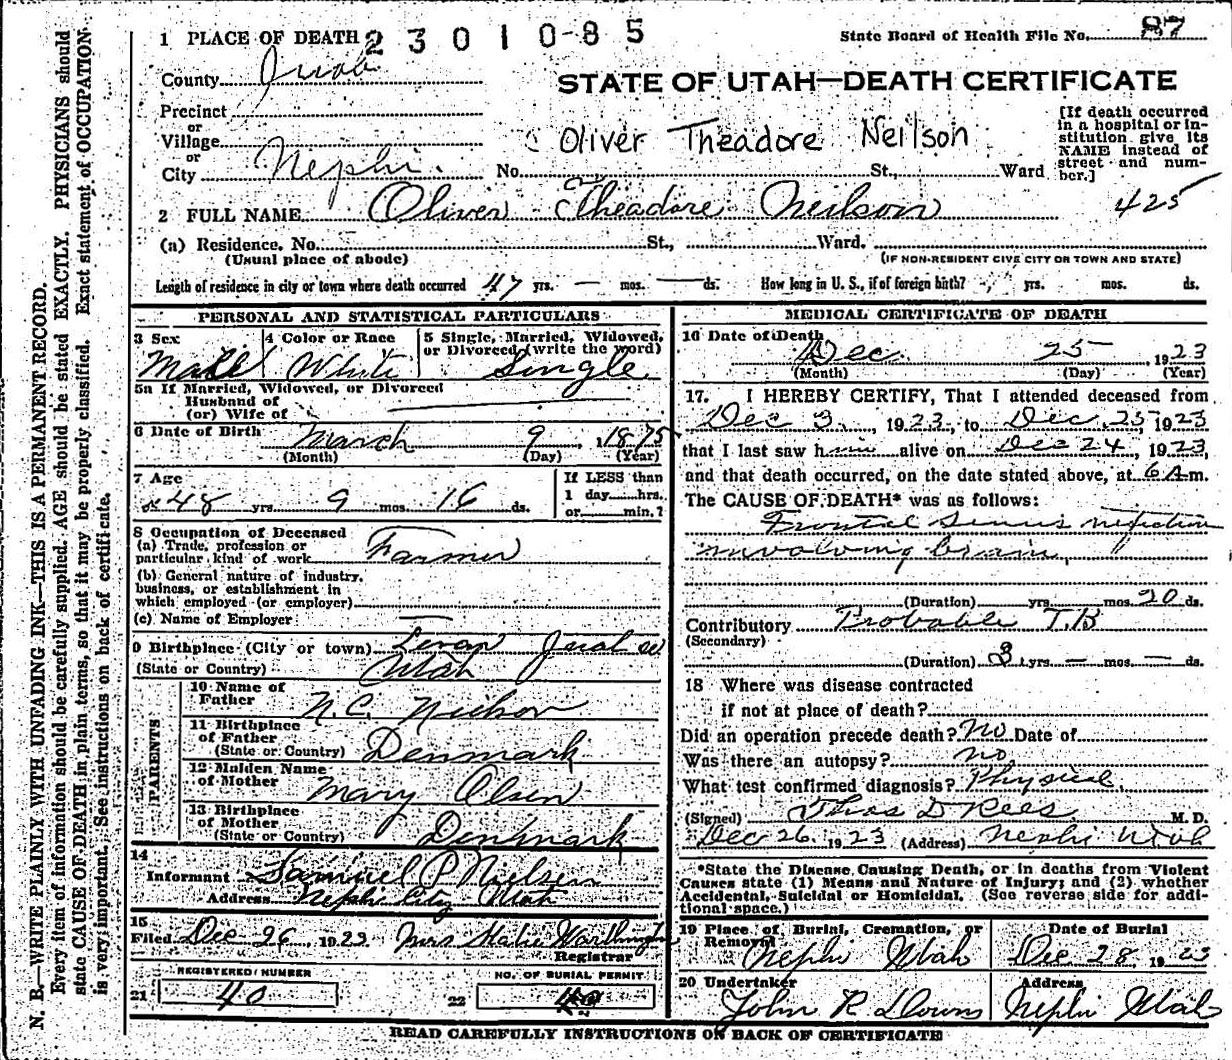 N. B.—WRITE PLAINLY WITH UNFADING INK—THIS IS A PERMANENT RECORD.
Every item of information should be carefully supplied. AGE should be stated EXACTLY. PHYSICIANS should
state CAUSE OF DEATH in plain terms, so that it may be properly classified. Exact statement of OCCUPATION
is very important. See instructions on back of certificate.
1 PLACE OF DEATH 2 3 0 1 0-8 5
State Board of Health File No. 87
County Juab
STATE OF UTAH—DEATH CERTIFICATE
Precinct
or
Village
or
City Nephi.
Oliver Theadore Neilson
No. St., Ward
[If death occurred
in a hospital or in-
stitution give its
NAME instead of
street and num-
ber.]
2 FULL NAME Oliver Theadore Neilson
425
(a) Residence. No. St., Ward.
(Usual place of abode) (IF NON-RESIDENT GIVE CITY OR TOWN AND STATE)
Length of residence in city or town where death occurred 47 yrs. — mos. — ds. How long in U. S., if of foreign birth? yrs. mos. ds.
PERSONAL AND STATISTICAL PARTICULARS
3 Sex Male
4 Color or Race White
5 Single, Married, Widowed,
or Divorced (write the word)
Single
5a If Married, Widowed, or Divorced
Husband of
(or) Wife of
6 Date of Birth March 9, 1875
(Month) (Day) (Year)
7 Age
48 yrs. 9 mos. 16 ds.
If LESS than
1 day hrs.
or min.?
8 Occupation of Deceased
(a) Trade, profession or
particular kind of work Farmer
(b) General nature of industry,
business, or establishment in
which employed (or employer)
(c) Name of Employer —
9 Birthplace (City or town) Levan Juab
(State or Country) Utah
PARENTS
10 Name of
Father N.C. Nielson
11 Birthplace
of Father
(State or Country) Denmark
12 Maiden Name
of Mother Mary Olsen
13 Birthplace
of Mother
(State or Country) Denmark
14
Informant Samuel P Nielsen
Address Nephi City Utah
15
Filed Dec 26, 1923 Mrs Worthington
Registrar
REGISTERED NUMBER
21 40
NO. OF BURIAL PERMIT
22 40
MEDICAL CERTIFICATE OF DEATH
16 Date of Death
Dec. 25, 1923
(Month) (Day) (Year)
17. I HEREBY CERTIFY, That I attended deceased from
Dec 3, 1923, to Dec. 25 1923
that I last saw him alive on Dec 24, 1923,
and that death occurred, on the date stated above, at 6 A m.
The CAUSE OF DEATH* was as follows:
Frontal sinus infection
involving brain,
(Duration) yrs. mos. 20 ds.
Contributory Probable T.B
(Secondary)
(Duration) 3 yrs. — mos. — ds.
18 Where was disease contracted
if not at place of death?
Did an operation precede death? No Date of
Was there an autopsy? no
What test confirmed diagnosis? Physical
(Signed) Thos D Rees M. D.
Dec 26, 1923 (Address) Nephi Utah
*State the Disease Causing Death, or in deaths from Violent
Causes state (1) Means and Nature of Injury; and (2) whether
Accidental, Suicidal or Homicidal. (See reverse side for addi-
tional space.)
19 Place of Burial, Cremation, or
Removal Nephi Utah
Date of Burial
Dec 28, 1923
20 Undertaker
John R Downs
Address
Nephi Utah
READ CAREFULLY INSTRUCTIONS ON BACK OF CERTIFICATE